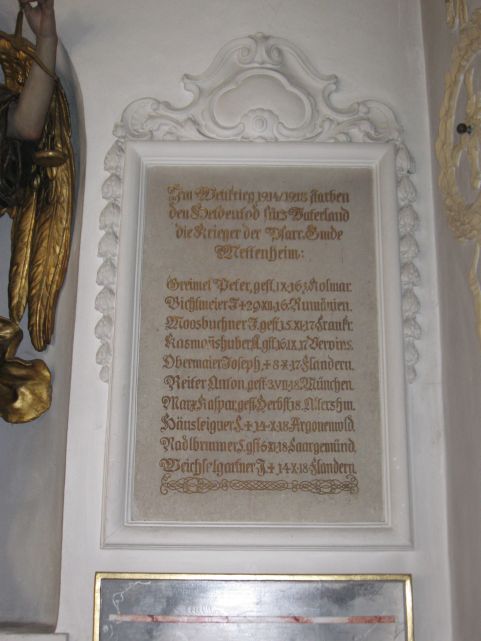 Im Weltkrieg 1914/1918 starben
den Heldentod fürs Vaterland
die Krieger der Pfarr-Gmde
Mettenheim:
Greimel Peter, gest. 1.X.16. Kolmar.
Bichlmeier J. + 29.XII.16 Rumänien.
Moosbuchner J. gest. 15.XI.17 Frankr.
Kasmoñshuber gst. 16.IX.17 Vervins.
Obermaier Joseph, + 8.X.17 Flandern.
Reiter Anton, gest. 3.VII.18 München
Marx Kaspar, gest. Herbst 18.
Häusleigner + 14.X.18 Argonenwld.
Nadlbrunner gst 6.XI.18 Saargemünd.
Weichselgartner J. + 14.X.18 Flandern.